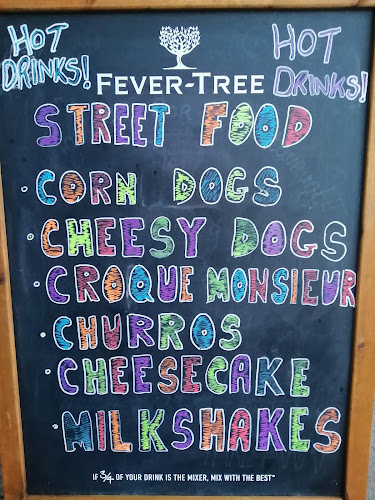 HOT DRINKS!
FEVER-TREE
HOT DRINKS!
STREET FOOD
• CORN DOGS
• CHEESY DOGS
• CROQUE MONSIEUR
• CHURROS
• CHEESECAKE
• MILKSHAKES
IF 3/4 OF YOUR DRINK IS THE MIXER, MIX WITH THE BEST™